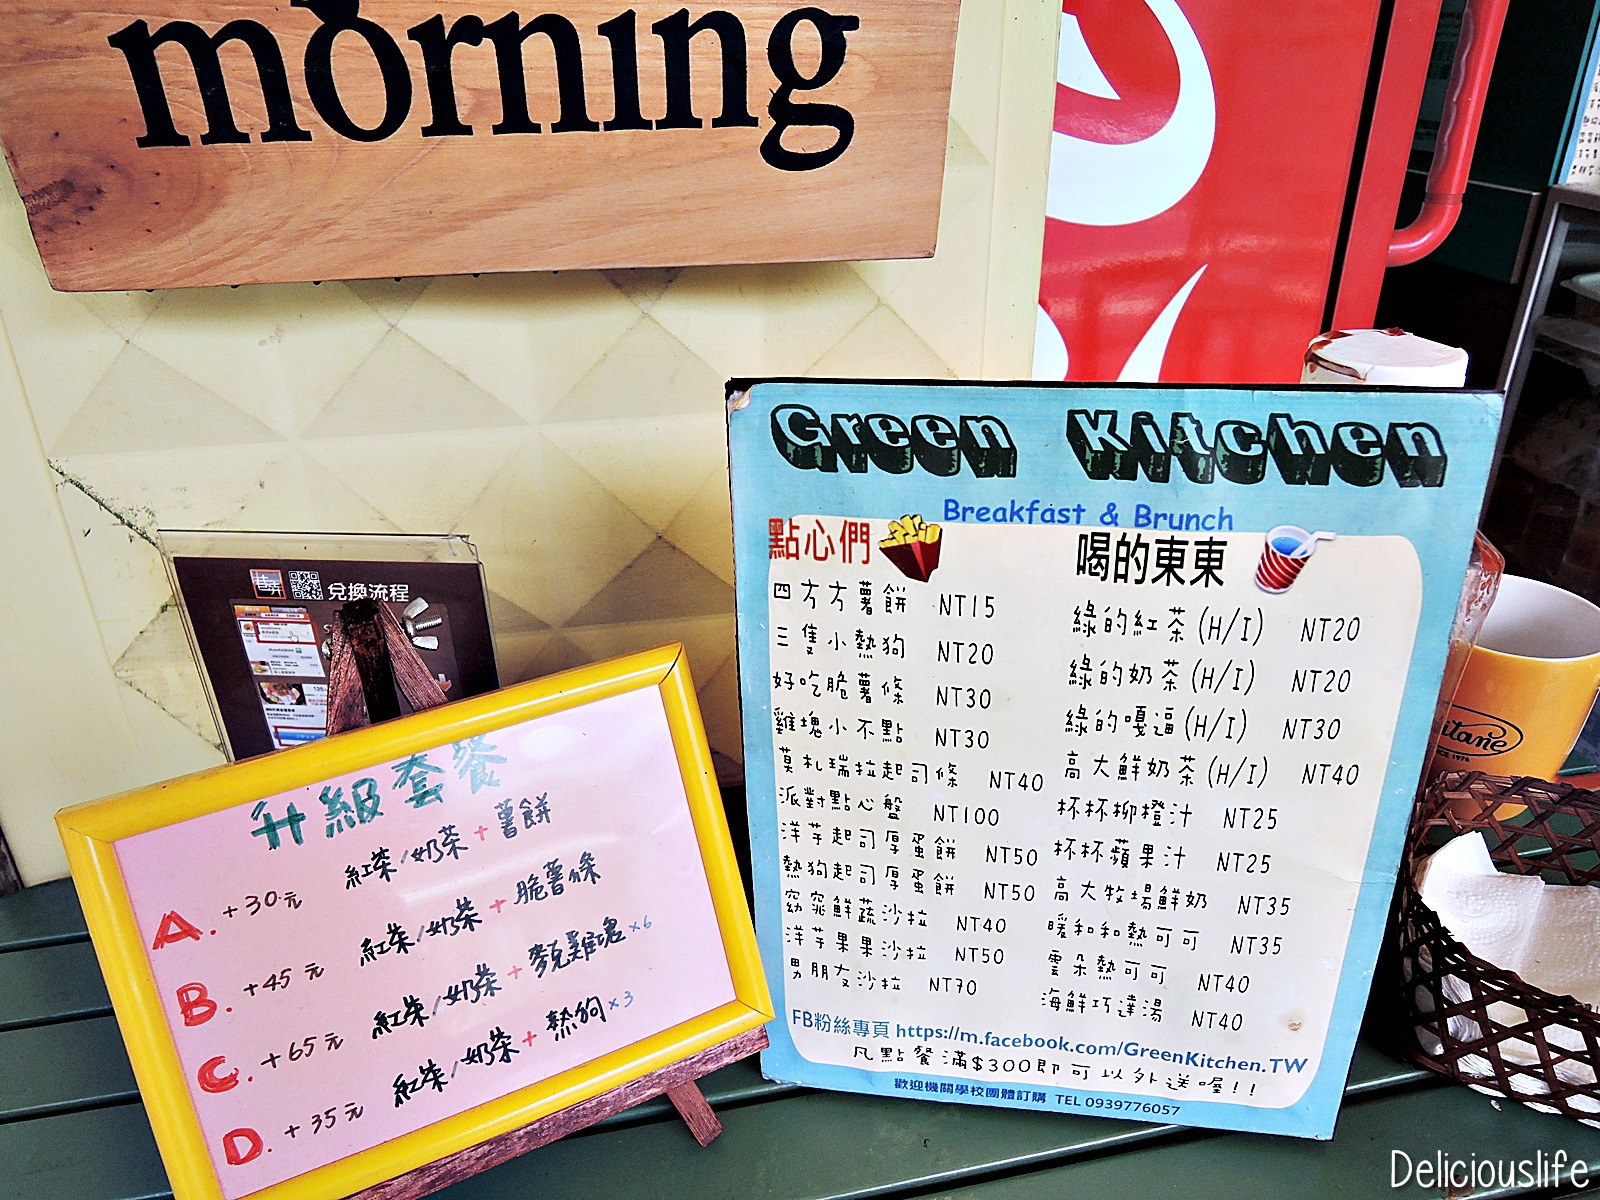 morning
兌換流程
升級套餐
A. +30元 紅茶/奶茶 + 薯餅
B. +45元 紅茶/奶茶 + 脆薯條
C. +65元 紅茶/奶茶 + 麥克雞塊 x6
D. +35元 紅茶/奶茶 + 熱狗 x3
Green Kitchen
Breakfast & Brunch
點心們
四方方薯餅 NT15
三隻小熱狗 NT20
好吃脆薯條 NT30
雞塊小不點 NT30
莫札瑞拉起司條 NT40
派對點心盤 NT100
洋芋起司厚蛋餅 NT50
熱狗起司厚蛋餅 NT50
窈窕鮮蔬沙拉 NT40
洋芋果果沙拉 NT50
男朋友沙拉 NT70
喝的東東
綠的紅茶(H/I) NT20
綠的奶茶(H/I) NT20
綠的嘎逼(H/I) NT30
高大鮮奶茶(H/I) NT40
杯杯柳橙汁 NT25
杯杯蘋果汁 NT25
高大牧場鮮奶 NT35
暖和和熱可可 NT35
雲朵熱可可 NT40
海鮮巧達湯 NT40
FB粉絲專頁 https://m.facebook.com/GreenKitchen.TW
凡點餐滿$300即可以外送喔!!
歡迎機關學校團體訂購 TEL 0939776057
Deliciouslife